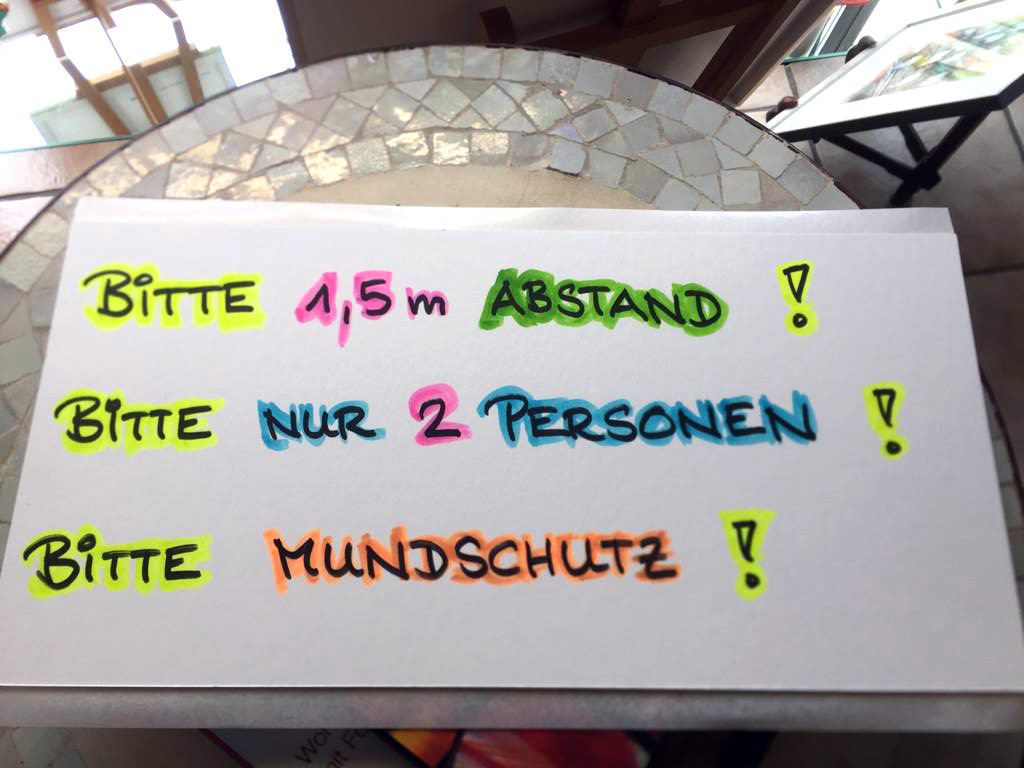 BITTE 1,5 m ABSTAND !
BITTE NUR 2 PERSONEN !
BITTE MUNDSCHUTZ !